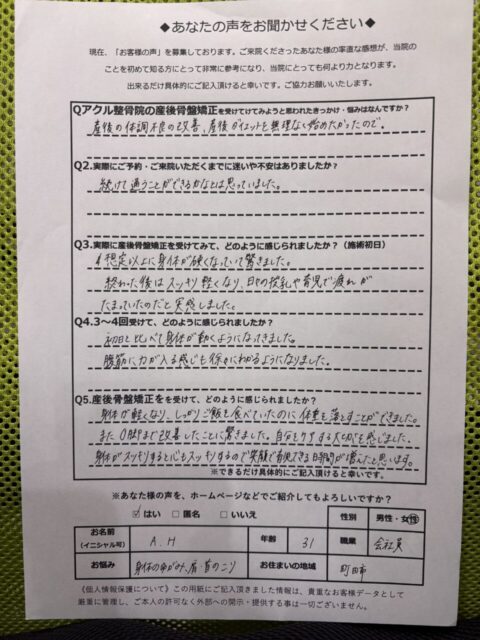 ◆あなたの声をお聞かせください◆
現在、「お客様の声」を募集しております。ご来院くださったあなた様の率直な感想が、当院の
ことを初めて知る方にとって非常に参考になり、当院にとっても何より力となります。
出来るだけ具体的にご記入頂けると幸いです。ご協力お願いいたします。
Qアクル整骨院の産後骨盤矯正を受けてけてみようと思われたきっかけ・悩みはなんですか?
産後の体調不良の改善、産後ダイエットを無理なく始めたかったので。
Q2.実際にご予約・ご来院いただくまでに迷いや不安はありましたか?
続けて通うことができるかなとは思っていました。
Q3.実際に産後骨盤矯正を受けてみて、どのように感じられましたか?(施術初日)
想定以上に身体が硬くなっていて驚きました。
終わった後はスッキリ軽くなり、日々の授乳や育児で疲れが
たまっていたのだと実感しました。
Q4.3〜4回受けて、どのように感じられましたか?
初日と比べて身体が動くようになってきました。
腹筋に力が入る感じも徐々にわかるようになりました。
Q5.産後骨盤矯正をを受けて、どのように感じられましたか?
身体が軽くなり、しっかりご飯も食べていたのに体重を落とすことができました。
またO脚まで改善したことに驚きました。自分をケアする大切さを感じました。
身体がスッキリすると心もスッキリするので笑顔で育児できる時間が増えたと思います。
※できるだけ具体的にご記入頂けると幸いです。
※あなた様の声を、ホームページなどでご紹介してもよろしいですか?
☑はい □匿名 □いいえ
性別 男性・女性
お名前
(イニシャル可) A.H 年齢 31 職業 会社員
お悩み 身体のゆがみ、肩・首のこり お住まいの地域 町田市
《個人情報保護について》この用紙にご記入頂きました情報は、貴重なお客様データとして
厳重に管理し、ご本人の許可なく外部への開示・提供する事は一切ございません。